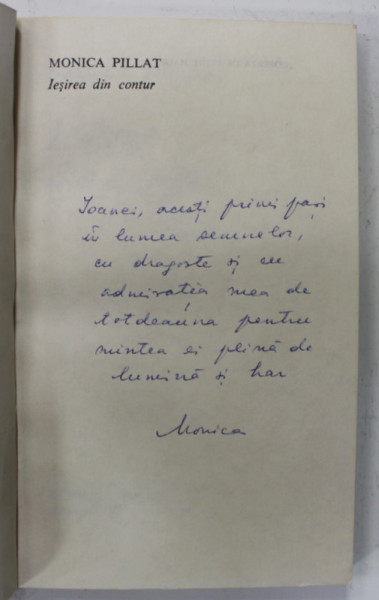 MONICA PILLAT
Ieșirea din contur
Ioanei, acești primi pași
în lumea semnelor,
cu dragoste și cu
admirația mea de
totdeauna pentru
mintea ei plină de
lumină și har
Monica